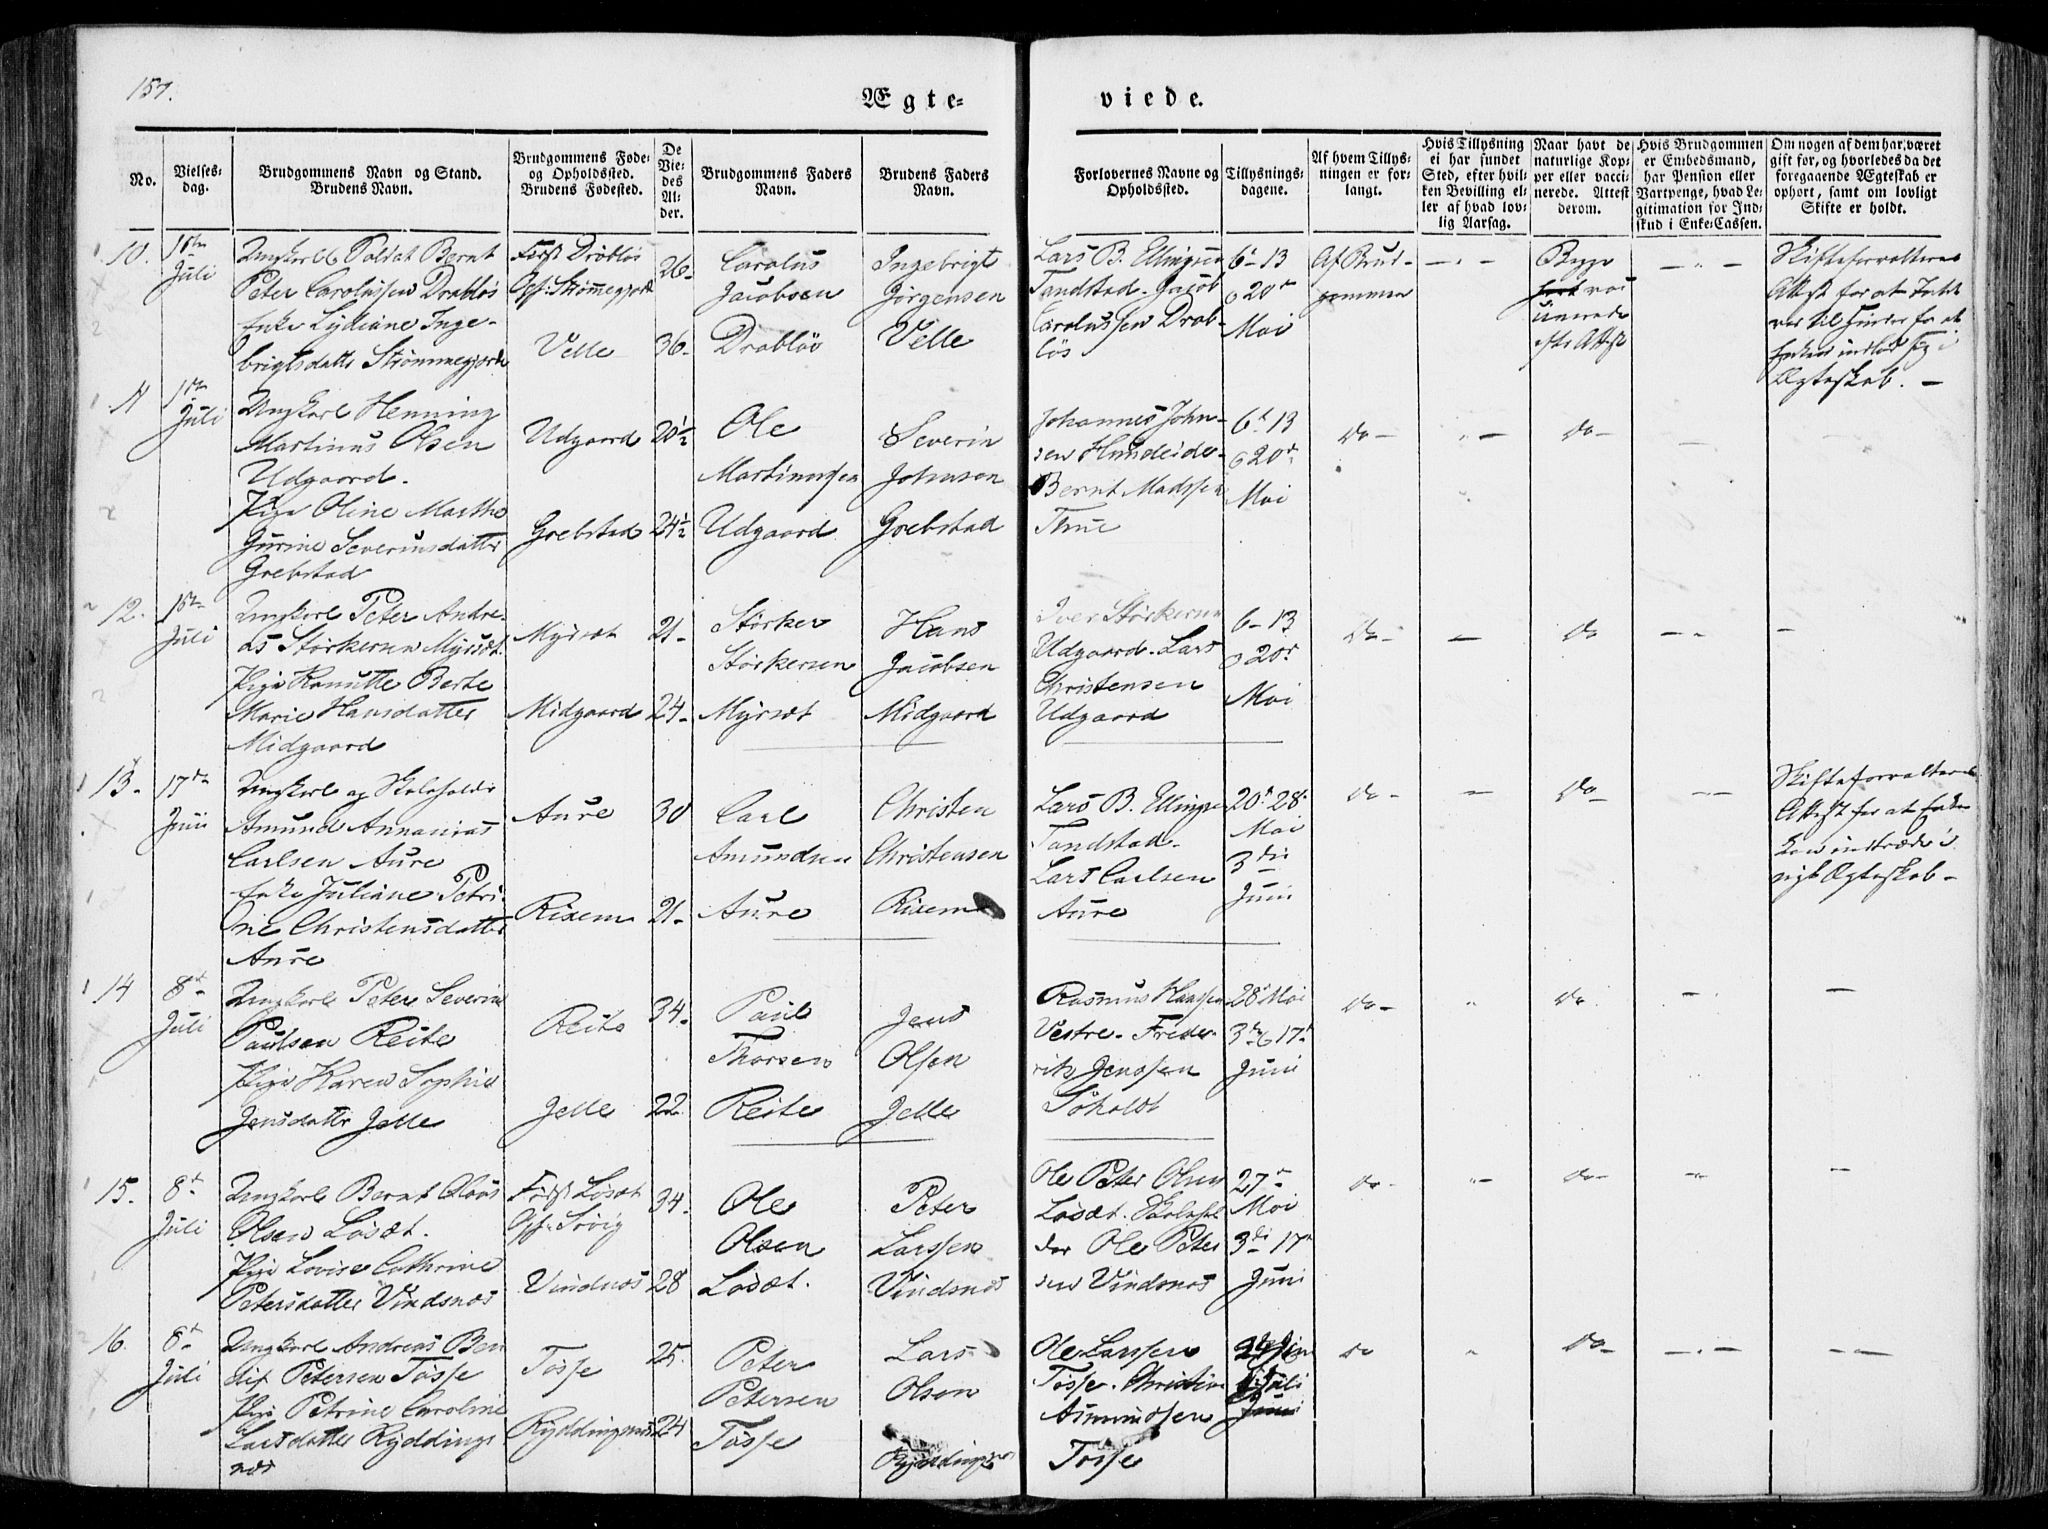 157.
Ægte-
viede.
No.
Vielses-
dag.
Brudgommens Navn og Stand.
Brudens Navn.
Brudgommens Føde-
og Opholdssted.
Brudens Fødested.
De
Vie-
des
Al-
der.
Brudgommens Faders
Navn.
Brudens Faders
Navn.
Forlovernes Navne og
Opholdssted.
Tillysnings-
dagene.
Af hvem Tillys-
ningen er for-
langt.
Hvis Tillysning
ei har fundet
Sted, efter hvil-
ken Bevilling el-
ler af hvad lov-
lig Aarsag.
Naar havt de
naturlige Kop-
per eller vacci-
nerede. Attest
derom.
Hvis Brudgommen
er Embedsmand,
har Pension eller
Vartpenge, hvad Le-
gitimation for Ind-
skud i Enke-Cassen.
Om nogen af dem har været
gift før, og hvorledes da det
foregaaende Ægteskab er
ophørt, samt om lovligt
Skifte er holdt.
10.
Juli
Ungkarl Soldat Bernt
Peter Carolussen Drabløs
Enke Lydiane Inge-
brigtsdatter Strømmegjerde
Født Drabløs
Oph: Strømmegjerde
Velle
26-
36-
Carolus
Jacobsen
Drabløs
Ingebrigt
Jørgensen
Velle
Lars B. Ellingsen
Tandstad. Jacob
Carolussen Drab-
løs
6- 13
20
Mai
Af Brud-
gommen
Begge
vac
cinerede
efter Attest
Skifteforvalterens
Attest for at Intet
var til Hinder for at
Enken indlod sig i
Ægteskab. -
11
Juli
Ungkarl Henning
Martinus Olsen
Udgaard.
Pige Oline Marthe
Gurine Severinsdatter
Grebstad
Udgaard
Grebstad
20½
24½
Ole
Martinussen
Udgaard
Severin
Johnsen
Grebstad
Johannes John-
sen Hundeide-
Bernt Madssen
Thue
6 13
20
Mai
Do -
Do -
12.
Juli
Ungkarl Peter Andre-
as Størkersen Myrsæt.
Pige Ranutte Berte
Marie Hansdatter
Midgaard
Myrsæt
Midgaard
21-
24-
Størker
Størkersen
Myrsæt
Hans
Jacobsen
Midgaard
Iver Størkersen
Udgaard. Lars
Christensen
Udgaard
6- 13
20
Mai
Do -
Do
13-
17de
Juni
Ungkarl og Skoleholder
Amund Annanias
Carlsen Aure
Enke Juliane Petri-
ne Christensdatter
Aure
Aure
Rixem
30
21-
Carl
Amundsen
Aure
Christen
Christensen
Rixem
Lars B. Ellingsen
Tandstad.
Lars Carlsen
Aure
20 28
Mai
3die
Juni
Do -
Do -
Skifteforvalterens
Attest for at Enken
kan indtræde i
nyt Ægteskab -
14
8
Juli
Ungkarl Peter Severin
Paulsen Reite
Pige Karen Sophie
Jensdatter Jelle
Reite
Jelle
34-
22
Paul
Thorsen
Reite
Jens
Olsen
Jelle
Rasmus Hanssen
Vestre. Frider-
rik Jenssen
Søholdt
28 Mai
3 17
Juni
Do -
Do
15.
8
Juli
Ungkarl Bernt Olaus
Olsen Løsæt.
Pige Lovise Cathrine
Petersdatter Vindsnæs
Født Løsæt
Oph: Søvig
Vindnæs
34.
28
Ole
Olsen
Løsæt.
Peter
Larssen
Vindsnæs
Ole Peter Olsen
Løsæt. Skolehol-
der Ole Peter
sen Vindsnæs
27
Mai
3di 17
Juni
Do -
Do -
16.
8
Juli
Ungkarl Andreas Ben
dix Petersen Tøsse
Pige Petrine Caroline
Larsdatter Ryddings
næs
Tøsse
Ryddingsnæs
25.
24
Peter
Petersen
Tøsse
Lars
Olsen
Ryddingsnæs
Ole Larssen
Tøsse. Christian
Asmundssen
Tøsse
Juli
Juni
Do
Do -